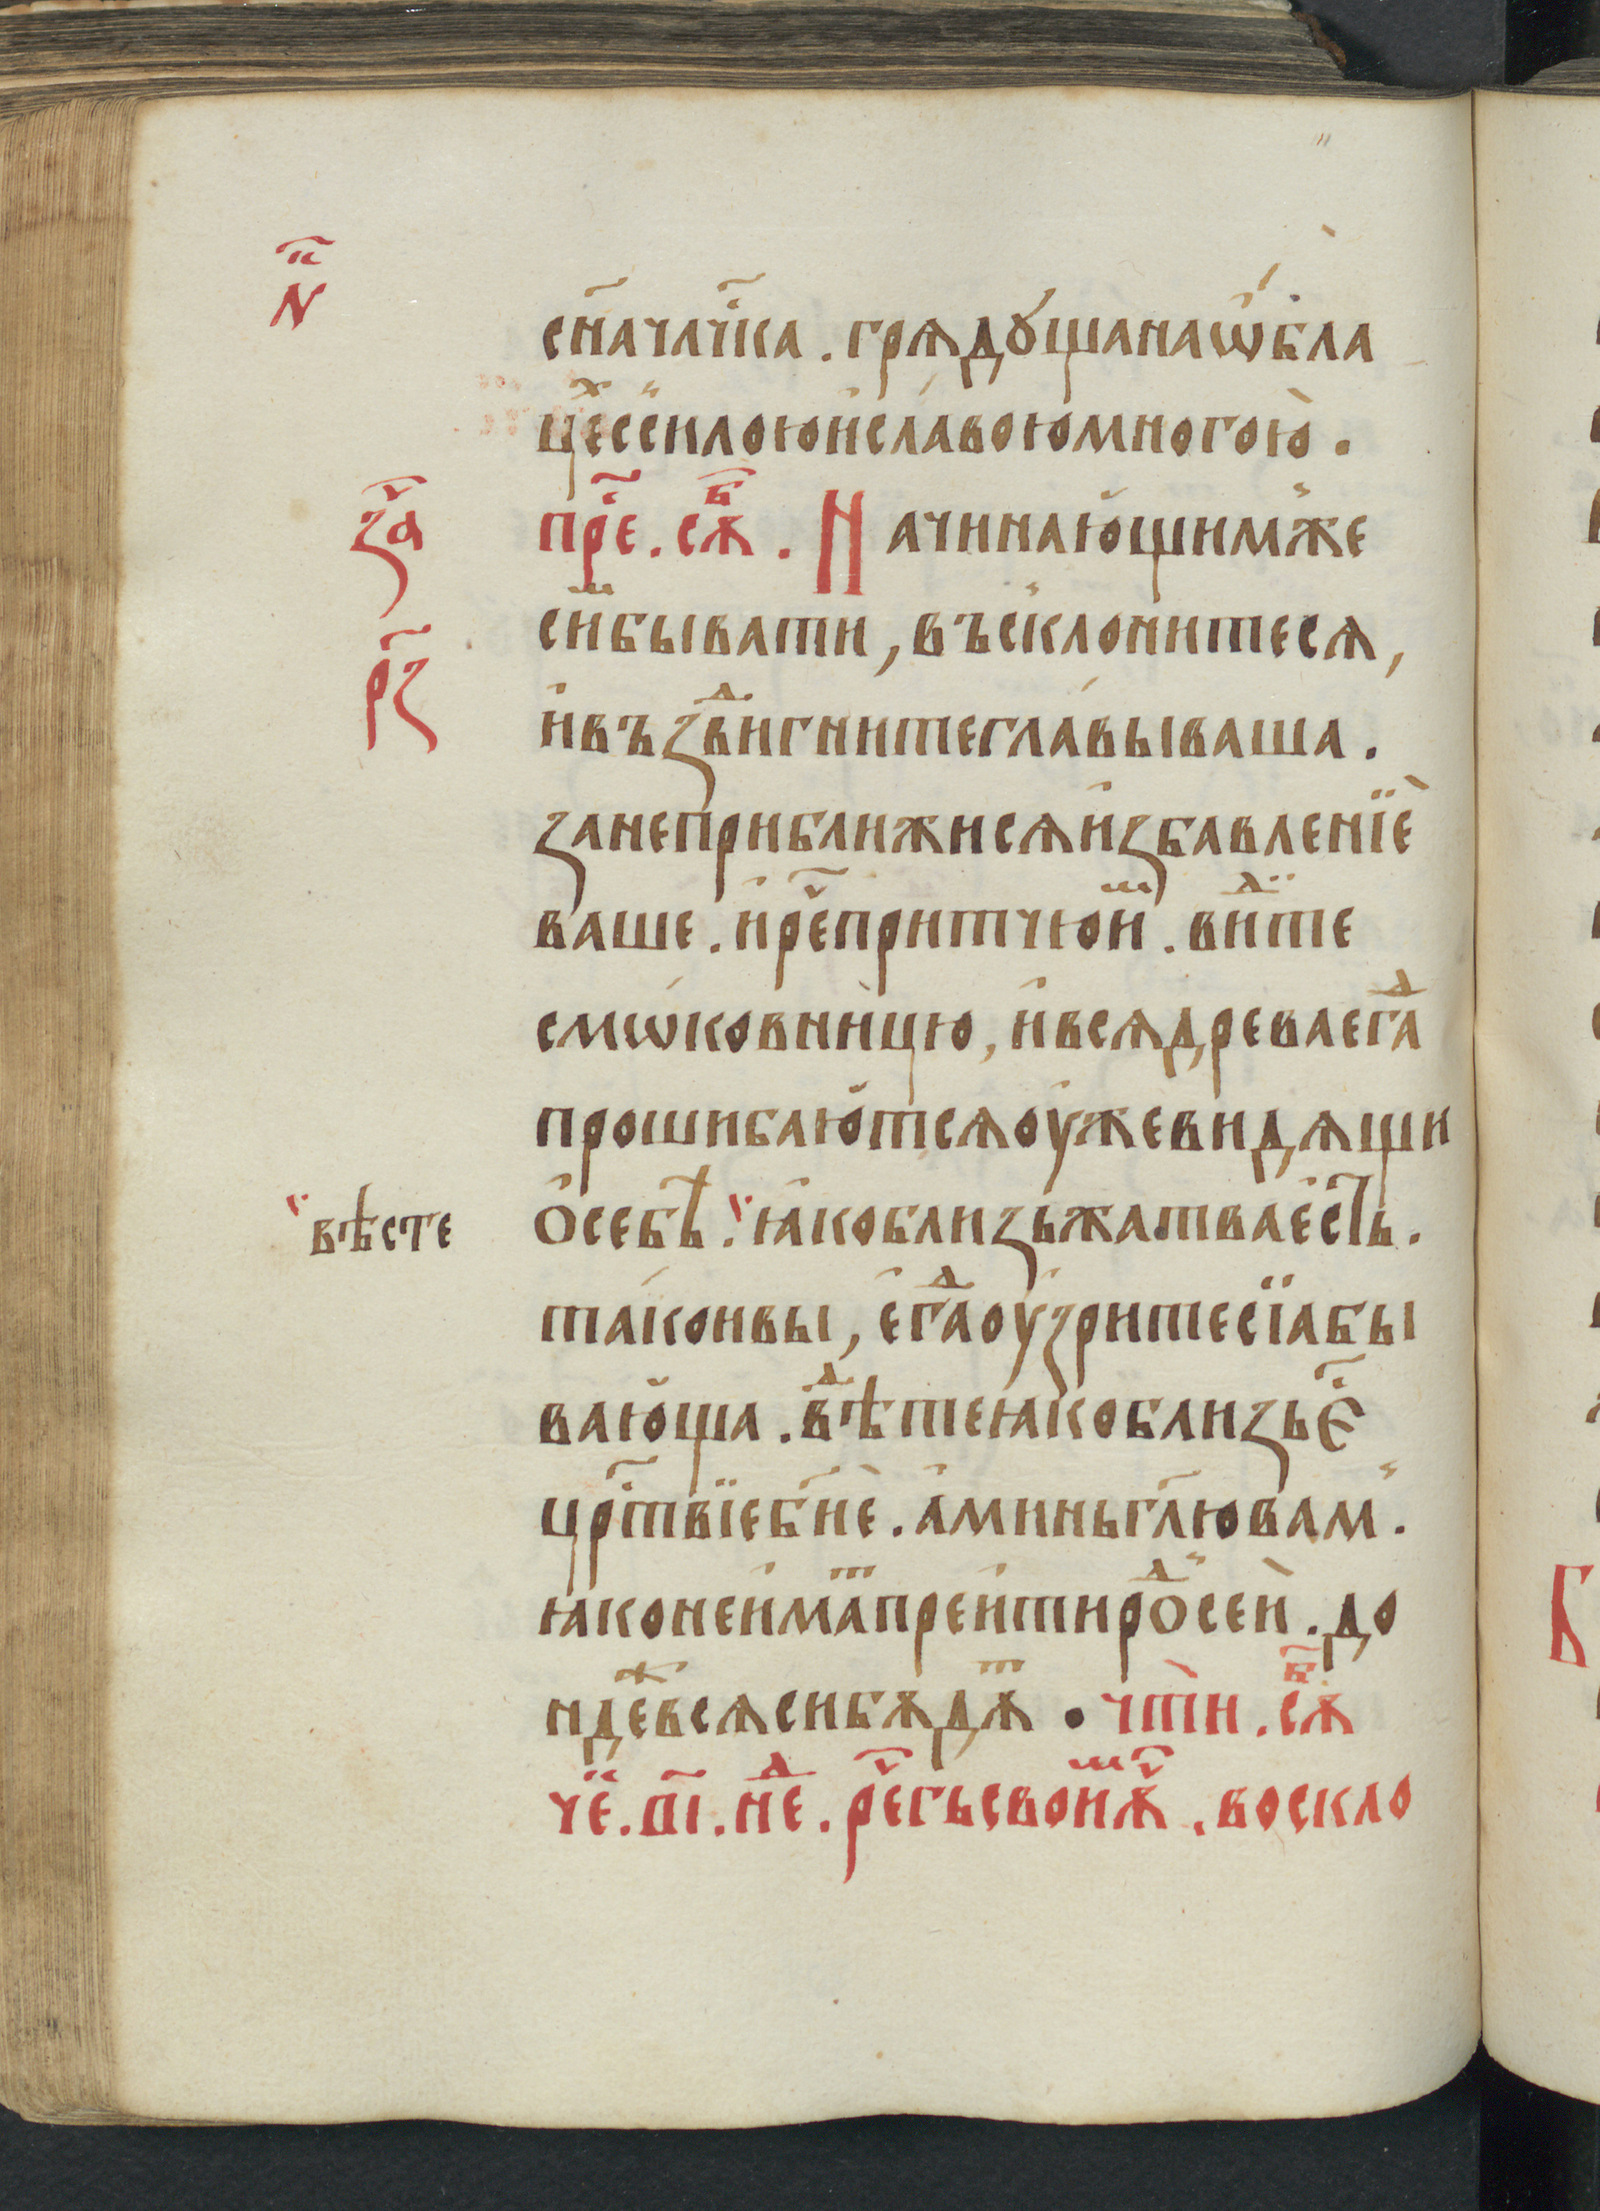 н҃ п
сн҃а чл҃чка . грядꙋща на ѡ҆бла
цѣ́хъ с си́лою и҆ сла́вою многою .
за҄
рз҃
пре҄ . сѫⷠ . Начинаю҆щим же
сиⷨ бывати , въсклонитеся ,
и҆ възвⷣигните главы ваша .
зане приближися и҆збавленїе
ваше . и҆ ре҄ притчю иⷨ . виⷣте
смѡковницю , и҆ вся древа егⷣа
прошибаю҆тся оуже видящи
вѣсте
ѻ҆ себѣ . ꙗко близь жатва е҆сть .
тако и вы , е҆гⷣа оу҆зрите сїа бы
вающа . вⷣѣте ꙗко близь є҆҄
црⷭ҇твїе бж҃їе . а҆минь гл҃ю вам .
ꙗко не и҆маⷨ преити роⷣ сей . до
ндеⷤ вся си бѫдѫⷮ . чти . сѫⷠ
че . п҃і . неⷣ . ре҄ гь своиⷨ ѫ҄҆ . воскло